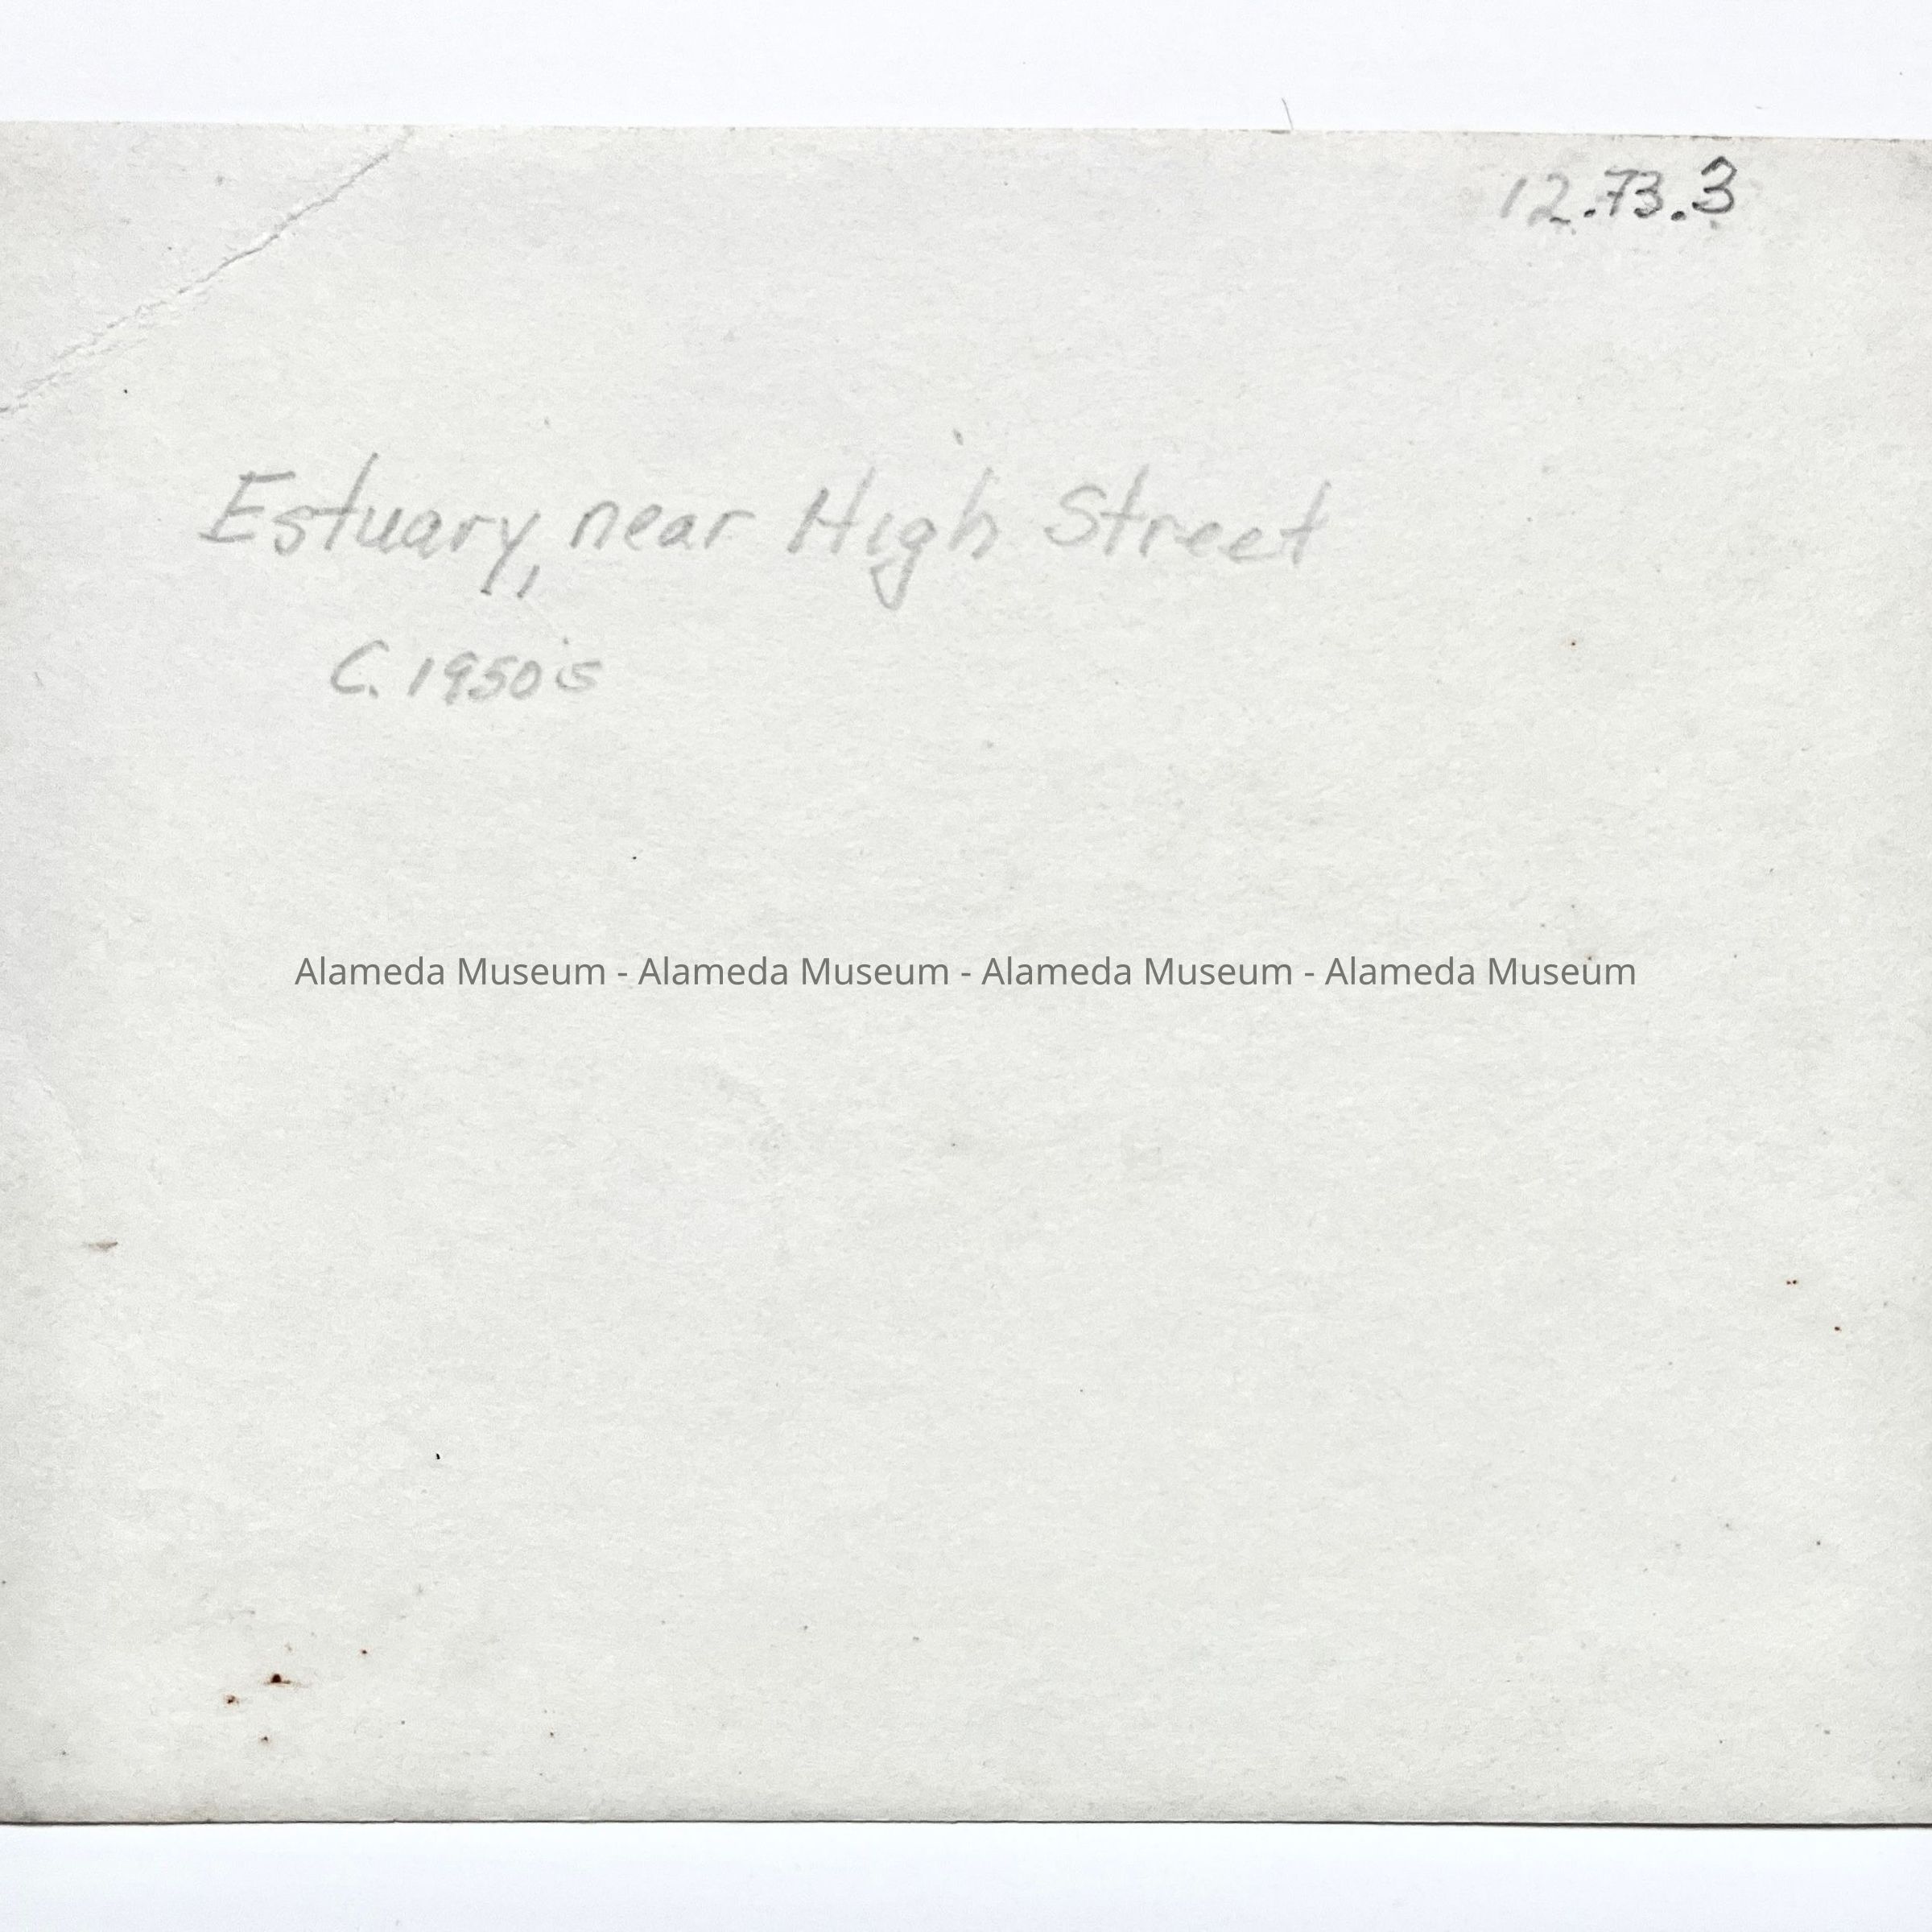 12.73.3
Estuary, near High Street
C. 1950's
Alameda Museum - Alameda Museum - Alameda Museum - Alameda Museum